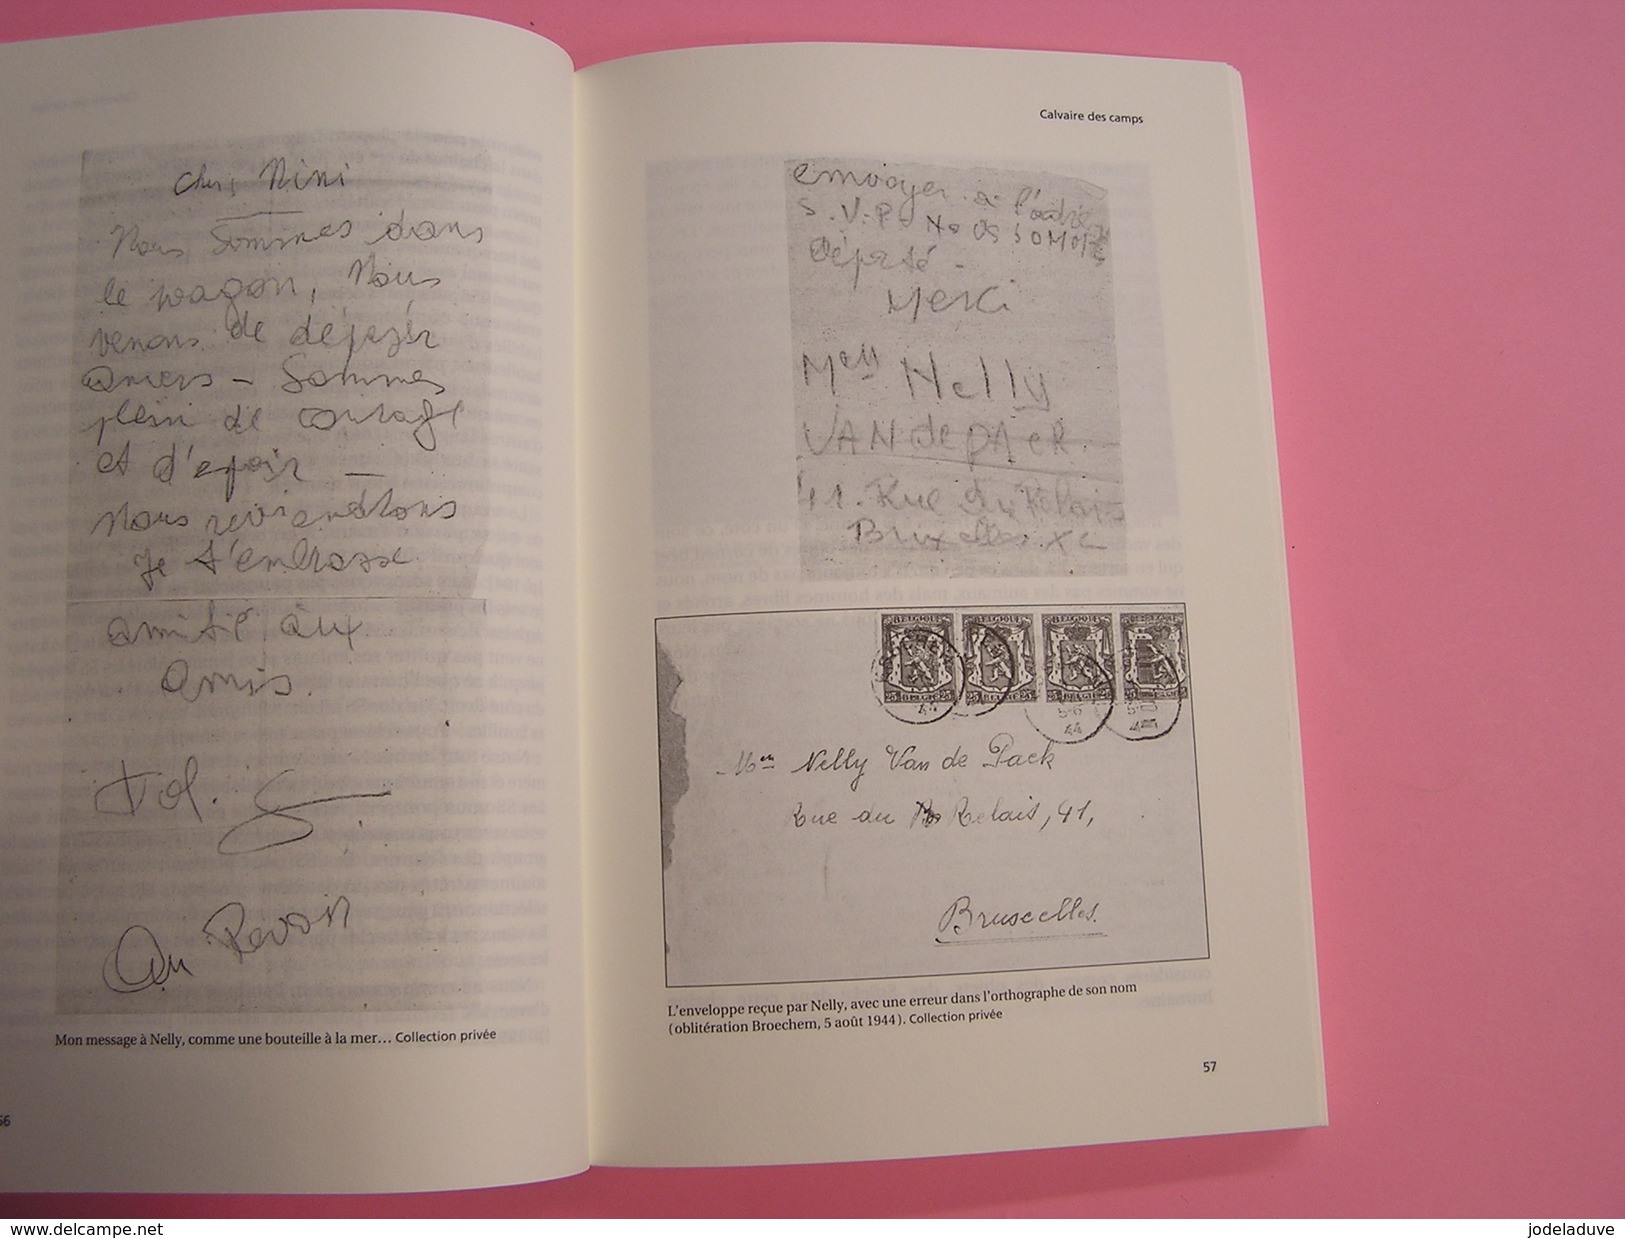 Cher Nini
Nous sommes dans
le wagon, Nous
venons de dépazér
Anvers - Sommes
plein de courage
et d'epoir -
Nous reviendrons
Je t'embrasse
amitié aux
amis.
Au Revoir
Mon message à Nelly, comme une bouteille à la mer… Collection privée
56
Calvaire des camps
envoyer à l'adre
S.V.P. Nous SOMMES
déporté -
Merci
Melle Nelly
VAN de PAeR
41. Rue du Relais
Bruxelles XL
BELGIQUE BELGIQUE BELGIQUE
25 BELGIE 25 25 BELGIE 25
5-8
44
Nelly Van de Paek
Rue du Relais, 41,
Bruxelles.
L'enveloppe reçue par Nelly, avec une erreur dans l'orthographe de son nom
(oblitération Broechem, 5 août 1944). Collection privée
57
www.delcampe.net
jodeladuve